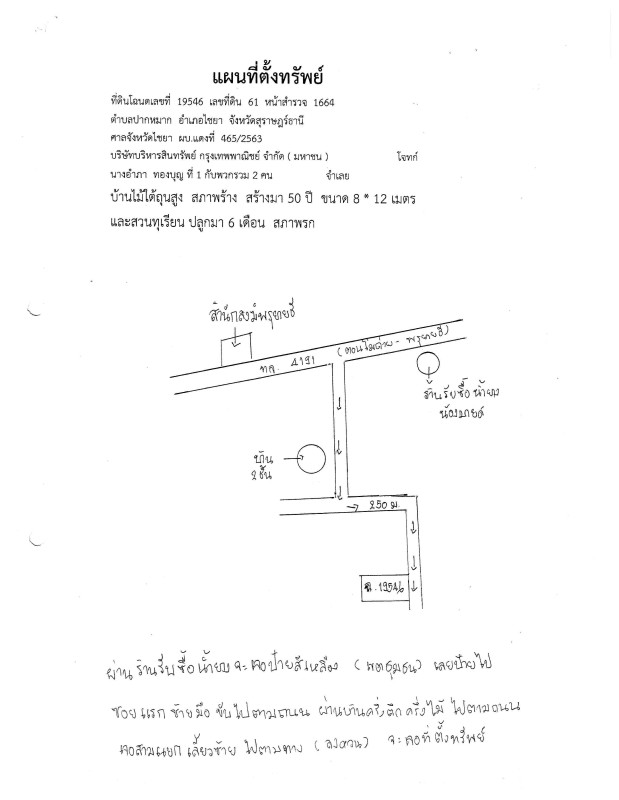 แผนที่ตั้งทรัพย์
ที่ดินโฉนดเลขที่ 19546 เลขที่ดิน 61 หน้าสำรวจ 1664
ตำบลปากหมาก อำเภอไชยา จังหวัดสุราษฎร์ธานี
ศาลจังหวัดไชยา ผบ.แดงที่ 465/2563
บริษัทบริหารสินทรัพย์ กรุงเทพพาณิชย์ จำกัด ( มหาชน ) โจทก์
นางอำภา ทองบุญ ที่ 1 กับพวกรวม 2 คน จำเลย
บ้านไม้ใต้ถุนสูง สภาพร้าง สร้างมา 50 ปี ขนาด 8 * 12 เมตร
และสวนทุเรียน ปลูกมา 6 เดือน สภาพรก
สำนักสงฆ์พรุยายชี
ทล. 4191
พรุยายชี)
ร้านรับซื้อน้ำยาง
บ้าน
2 ชั้น
250 ม.
ฉ. 19546
ผ่านร้านรับซื้อน้ำยาง จะเจอป้ายสีเหลือง (เขตชุมชน) เลยป้ายไป
ซอยแรกซ้ายมือ ขับไปตามถนน ผ่านบ้านครึ่งตึกครึ่งไม้ ไปตามถนน
เจอสามแยก เลี้ยวซ้าย ไปตามทาง (ลงสวน) จะเจอที่ตั้งทรัพย์